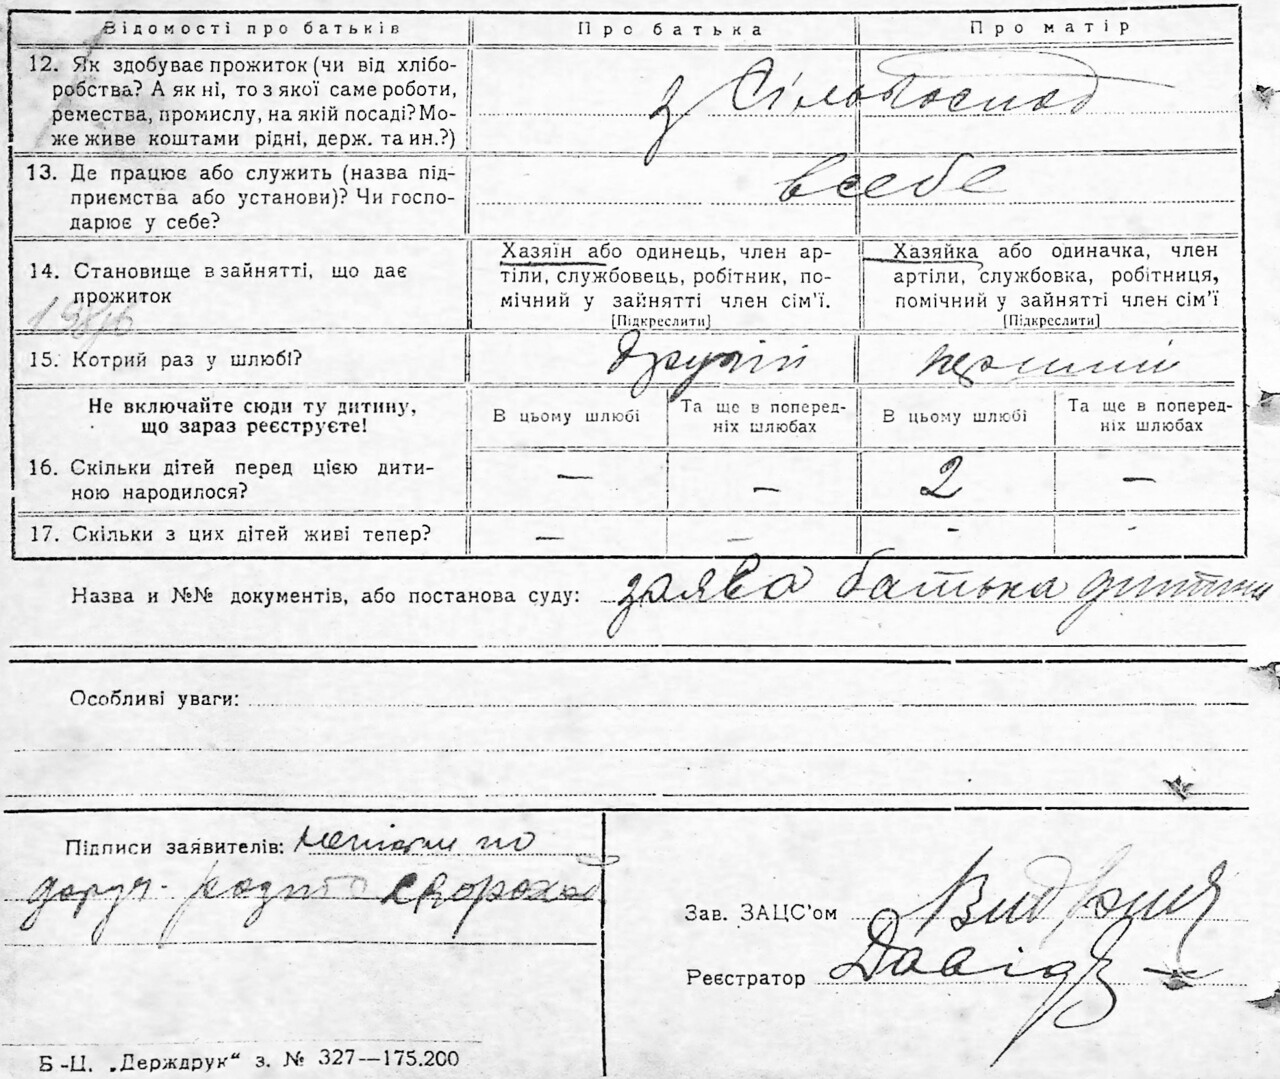 Відомості про батьків Про батька Про матір
12. Як здобуває прожиток (чи від хлібо-
робства? А як ні, то з якої саме роботи,
ремества, промислу, на якій посаді? Мо-
же живе коштами рідні, держ. та ин.?)
з Сільгоспод
13. Де працює або служить (назва під-
приємства або установи)? Чи госпо-
дарює у себе?
всебе
14. Становище в зайнятті, що дає
прожиток
Хазяїн або одинець, член ар-
тіли, службовець, робітник, по-
мічний у зайнятті член сім'ї.
[Підкреслити]
Хазяйка або одиначка, член
артіли, службовка, робітниця,
помічний у зайнятті член сім'ї
[Підкреслити]
15. Котрий раз у шлюбі? другій перший
Не включайте сюди ту дитину,
що зараз реєструєте!
В цьому шлюбі
Та ще в поперед-
ніх шлюбах
В цьому шлюбі
Та ще в поперед-
ніх шлюбах
16. Скільки дітей перед цією дити-
ною народилося?
— — 2 —
17. Скільки з цих дітей живі тепер? — — - -
Назва и №№ документів, або постанова суду: заява батька дитини
Особливі уваги:
Підписи заявителів: по
доруч.
Зав. ЗАЦС'ом
Реєстратор
Б-Ц. „Держдрук“ з. № 327—175.200